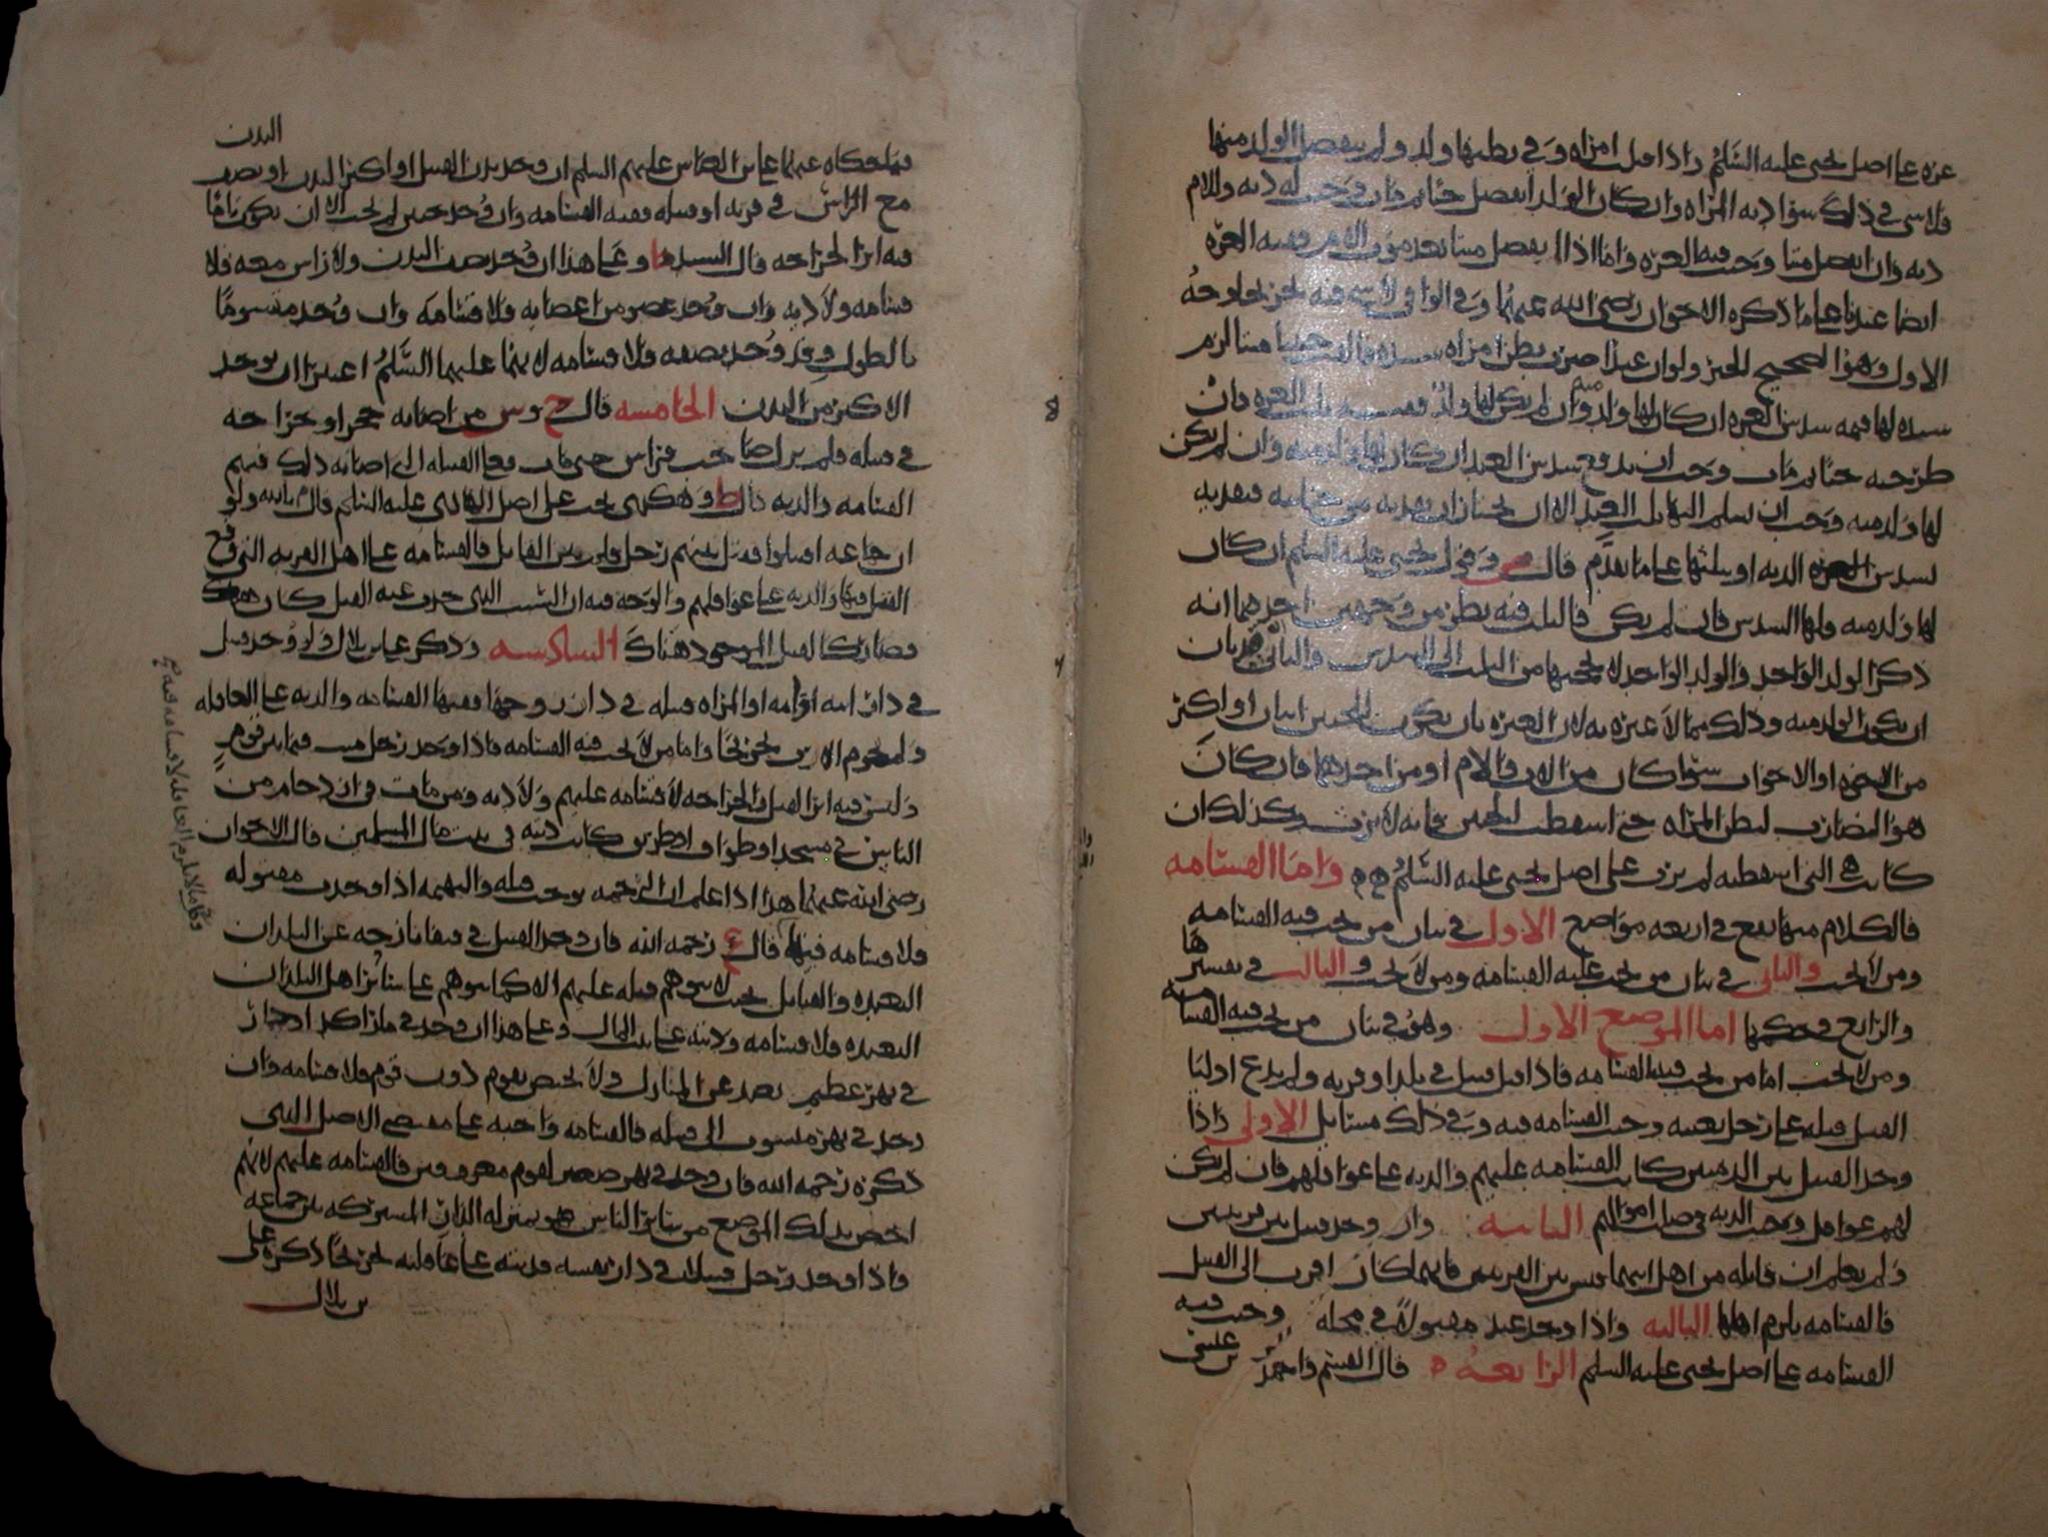 غره على اصل يحيى عليه السلم واذا قتلت امراه وفي بطنها ولد ولم ينفصل الولد منها
فلا شي في ذلك سوا ديه المراه وان كان الولد انفصل حيا ثم مات وجبت له ديه وللام
ديه وان انفصل ميتا وجبت فيه الغره واما اذا انفصل ميتا بعد موت الام ففيه الغره
ايضا عندنا على ما ذكره الاخوان رضي الله عنهما وفي الوافي لا شي فيه
الاول وهو الصحيح ولو ان عبدا ضرب بطن امراه سيده فالقت جنينا ميتا لزم
سيده لها قيمه سدس الغره ان كان لها ولد منه وان لم يكن لها ولد ثلث الغره فان
طرحته حيا ثم مات وجب ان يدفع سدس العبد ان كان لها ولد منه وان لم يكن
لها ولد منه وجب ان يسلم اليها ثلث العبد الا ان يختار ان يفديه من جنايته فيفديه
بسدس الديه او بثلثها على ما تقدم قال وقول يحيى عليه السلم ان كان
لها ولد منه ولها السدس فان لم يكن فالثلث فيه نظر من وجهين احدهما انه
ذكر الولد الواحد والولد الواحد لا يحجبها من الثلث الى السدس والثاني
ان يكون الولد منه وذلك مما لا عبره به لان العبره بان يكون للجنين اثنان او اكثر
من الاخوه او الاخوات سوا كان من الاب والام او من احدهما فان كان
هو الضارب لبطن المراه حتى اسقطت الجنين فانه لا يرث وكذلك ان
كانت هي التي اسقطته لم يرث على اصل يحيى عليه السلم واما القسامه
فالكلام منها يقع في اربعه مواضع الاول في بيان من تجب فيه القسامه
ومن لا تجب والثاني في بيان من تجب عليه القسامه ومن لا تجب والثالث في تفسيرها
والرابع في حكمها اما الموضع الاول وهو في بيان من تجب فيه القسامه
ومن لا تجب اما من تجب فيه القسامه فاذا قتل قتيل في بلد او قريه ولم يدع اوليا
القتيل قتله على رجل بعينه وجبت القسامه فيه وفي ذلك مسايل الاولى واذا
وجد القتيل بين الذميين كانت القسامه عليهم والديه على عواقلهم فان لم يكن
لهم عواقل وجبت الديه في اموالهم الثانيه وان وجد قتيل بين قريتين
ولم يعلم ان قاتله من اهل القريتين فايهما كان اقرب الى القتيل
فالقسامه يلزم اهلها الثالثه واذا وجد عبد مقتولا في محله وجبت فيه
القسامه على اصل يحيى عليه السلم الرابعه قال القسم واحمد بن عيسى
فيما حكاه عنهما علي بن العباس عليهم السلم ان وجد بدن القتيل او اكثر البدن او نصف البدن
مع الراس في قريه او قبيله ففيه القسامه وان وجد جنين لم تجب الا ان يكون تاما
فيه اثر الجراحه قال السيد ط وعلى هذا ان وجد نصف البدن ولا راس معه فلا
قسامه ولا ديه وان وجد عضو من اعضايه فلا قسامه وان وجد مقسوما
بالطول وقد وجد نصفه فلا قسامه لانهما عليهما السلم اعتبرا ان يوجد
الاكثر من البدن الخامسه قال ح وس من اصابه حجر او جراحه
في قبيله فلم يزل صاحب فراش حتى مات فعلى القبيله التي اصابه ذلك فيهم
القسامه والديه قال ط وهكذى يجب على اصل الهادي عليه السلم قال م بالله ولو
ان جماعه اقتتلوا فقتل بينهم رجل ولم يدر القاتل فالقسامه على اهل القريه التي وقع
القتل فيها والديه على عواقلهم والوجه فيه ان السبب الذي حدث عنه القتل كان هناك
فصار كالقتيل الموجود هناك السادسه وذكر علي بن بلال ولو وجد قتيل
في دار ابيه او امه او المراه قتيله في دار زوجها ففيها القسامه والديه على العاقله
ولا يحرم الارث واما من لا تجب فيه القسامه فاذا وجد رجل ميت فيما بين قوم
وليس فيه اثر القتل والجراحه لا قسامه عليهم ولا ديه ومن مات في ازدحام من
الناس في مسجد او طواف او طريق كانت ديته في بيت مال المسلمين قال الاخوان
رضي الله عنهما هذا اذا علم ان الزحمه توجب قتله والبهيمه اذا وجدت مقتوله
فلا قسامه فيها قال ع رحمه الله فان وجد القتيل في فيفا نازحه عن البلدان
البعيده والقبايل بحيث لا يتوهم قتله عليهم الا كما يتوهم على ساير اهل البلدان
البعيده فلا قسامه وديته على بيت المال وعلى هذا ان وجد في مازاكد او جار
في نهر عظيم بعد عن المنازل ولا يختص بقوم دون قوم فلا قسامه وان
وجد في نهر منسوب الى قبيله فالقسامه واجبه على مقتضى الاصل الذي
ذكره رحمه الله فان وجد في نهر صغير لقوم معروفين فالقسامه عليهم لانهم
اخص بذلك الموضع من ساير الناس هو بمنزله الدار المشتركه بين جماعه
واذا وجد رجل قتيلا في دار نفسه فديته على عاقلته ذكره علي
بن بلال